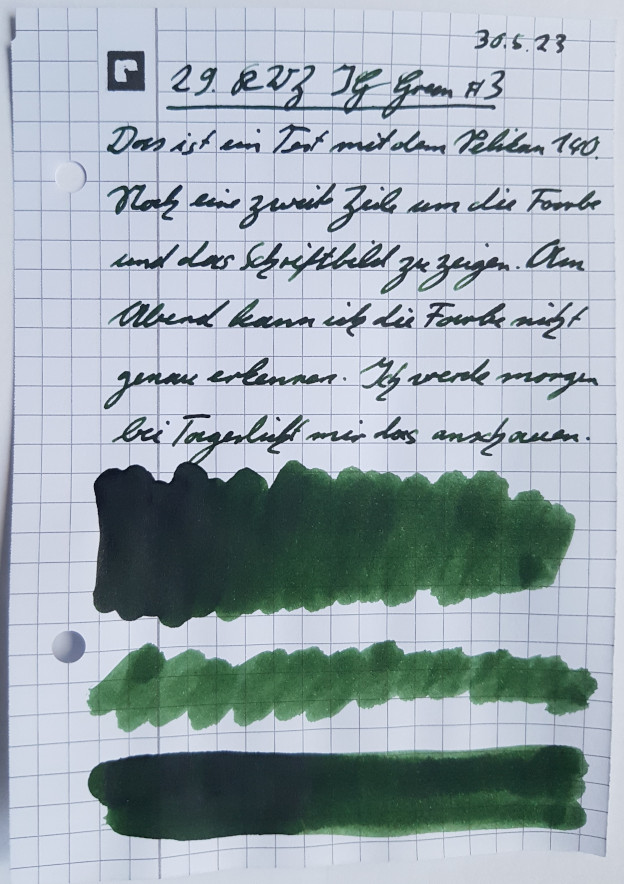 30.5.23
29. KWZ IG Green #3
Das ist ein Test mit dem Pelikan 140.
Noch eine zweite Zeile um die Farbe
und das Schriftbild zu zeigen. Am
Abend kann ich die Farbe nicht
genau erkennen. Ich werde morgen
bei Tageslicht mir das anschauen.